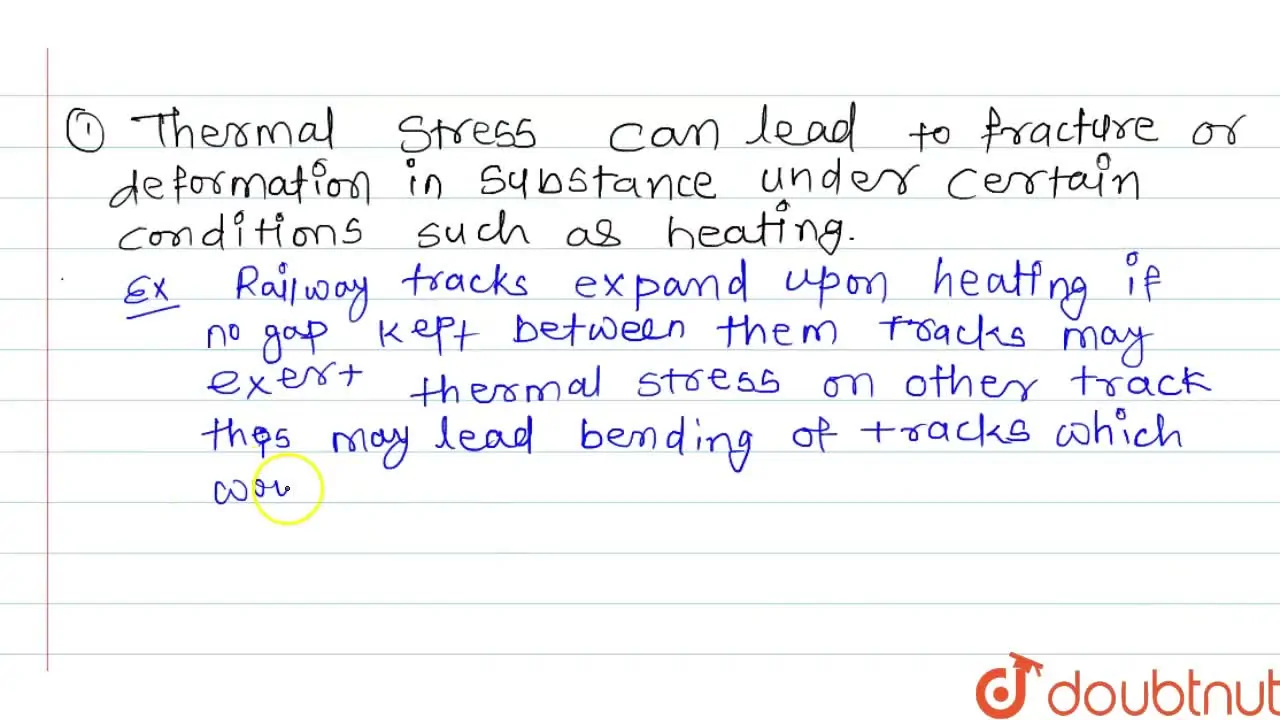 ① Thermal stress can lead to fracture or
deformation in substance under certain
conditions such as heating.
Ex Railway tracks expand upon heating if
no gap kept between them tracks may
exert thermal stress on other track
this may lead bending of tracks which
doubtnut